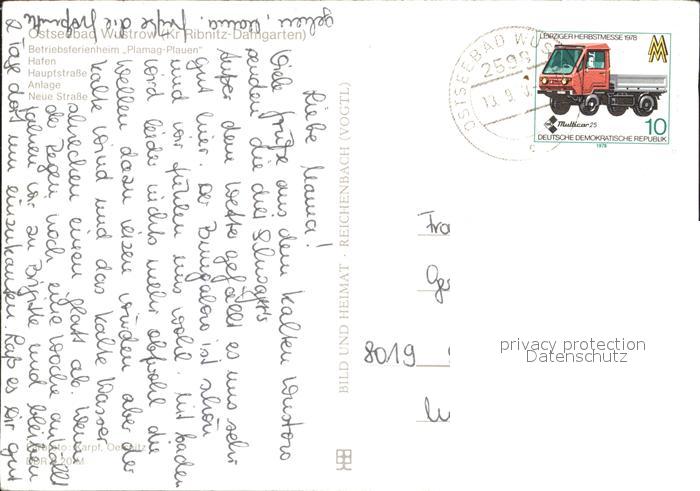 Ostseebad Wustrow (Kr Ribnitz-Damgarten)
Betriebsferienheim „Plamag-Plauen"
Hafen
Hauptstraße
Anlage
Neue Straße
Liebe Mama!
Viele Grüße aus dem kalten Wustrow
senden die drei
Außer dem Wetter gefällt es uns sehr
gut hier. Der Bungalow ist schön
und wir fühlen uns wohl. Mit baden
wird leider nichts mehr obwohl die
Wellen dazu reizen würden aber der
kalte Wind und das kalte Wasser
schrecken einen glatt ab. Wenn
der Regen noch eine Woche anhält
fahren wir zu Brigitte und bleiben
2 Tage dort um einzukaufen. Laß es dir gut
gehen, Mama. Grüße die
BILD UND HEIMAT · REICHENBACH (VOGTL)
OSTSEEBAD WUS
2598
13. 9.
LEIPZIGER HERBSTMESSE 1978
Multicar 25
10
DEUTSCHE DEMOKRATISCHE REPUBLIK
1978
Fra
Ge
8019
privacy protection
Datenschutz